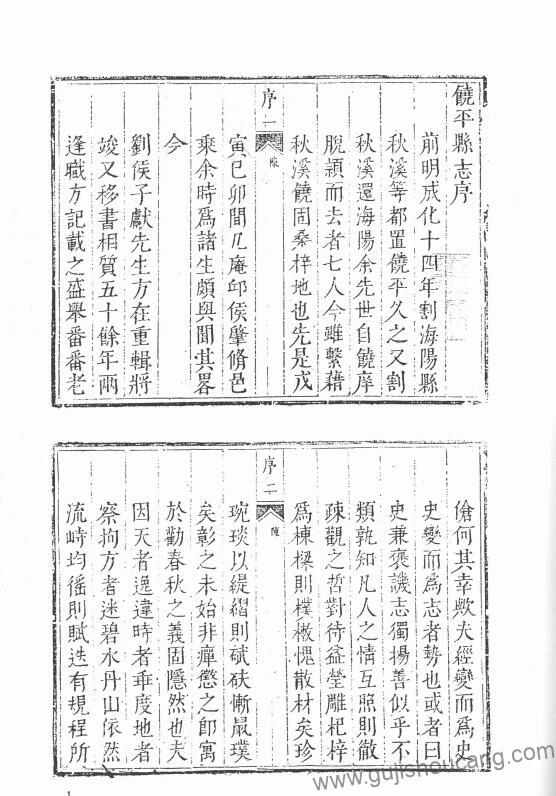 饒平縣志序
前明成化十四年割海陽縣
秋溪等都置饒平久之又割
秋溪還海陽余先世自饒庠
脫穎而去者七人今雖繫藉
秋溪饒固桑梓地也先是戊
序一
陳
寅己卯間几庵邱侯肇脩邑
乘余時爲諸生頗與聞其畧
今
劉侯子獻先生方在重輯將
竣又移書相質五十餘年兩
逢職方記載之盛舉番番老
傖何其幸歟夫經變而爲史
史變而爲志者勢也或者曰
史兼褒譏志獨揚善似乎不
類孰知凡人之情互照則徹
疎觀之哲對待益瑩雕杞梓
爲棟樑則樸樕愧散材矣珍
序二
陳
琬琰以緹縐則碔砆慚最璞
矣彰之未始非癉懲之卽寓
於勸春秋之義固隱然也夫
因天者逸違時者乖度地者
察拘方者迷碧水丹山依然
流峙均徭則賦迭有規程所
1
www.gujishoucang.com